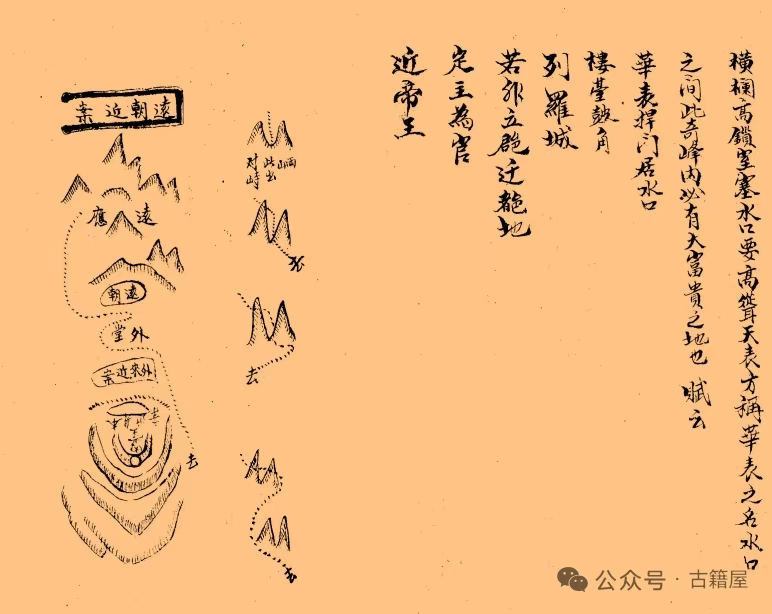 橫欄高鎖窒塞水口要高聳天表方稱華表之名水口
之间此奇峰內必有大富貴之地也 賦云
華表捍门居水口
樓臺鼓角
列羅城
若非立郡迁都地
定主為官
近帝王
兩山此出对峙
去
去
去
遠朝近案
遠應
遠朝
外堂
外來近案
去
公众号·古籍屋